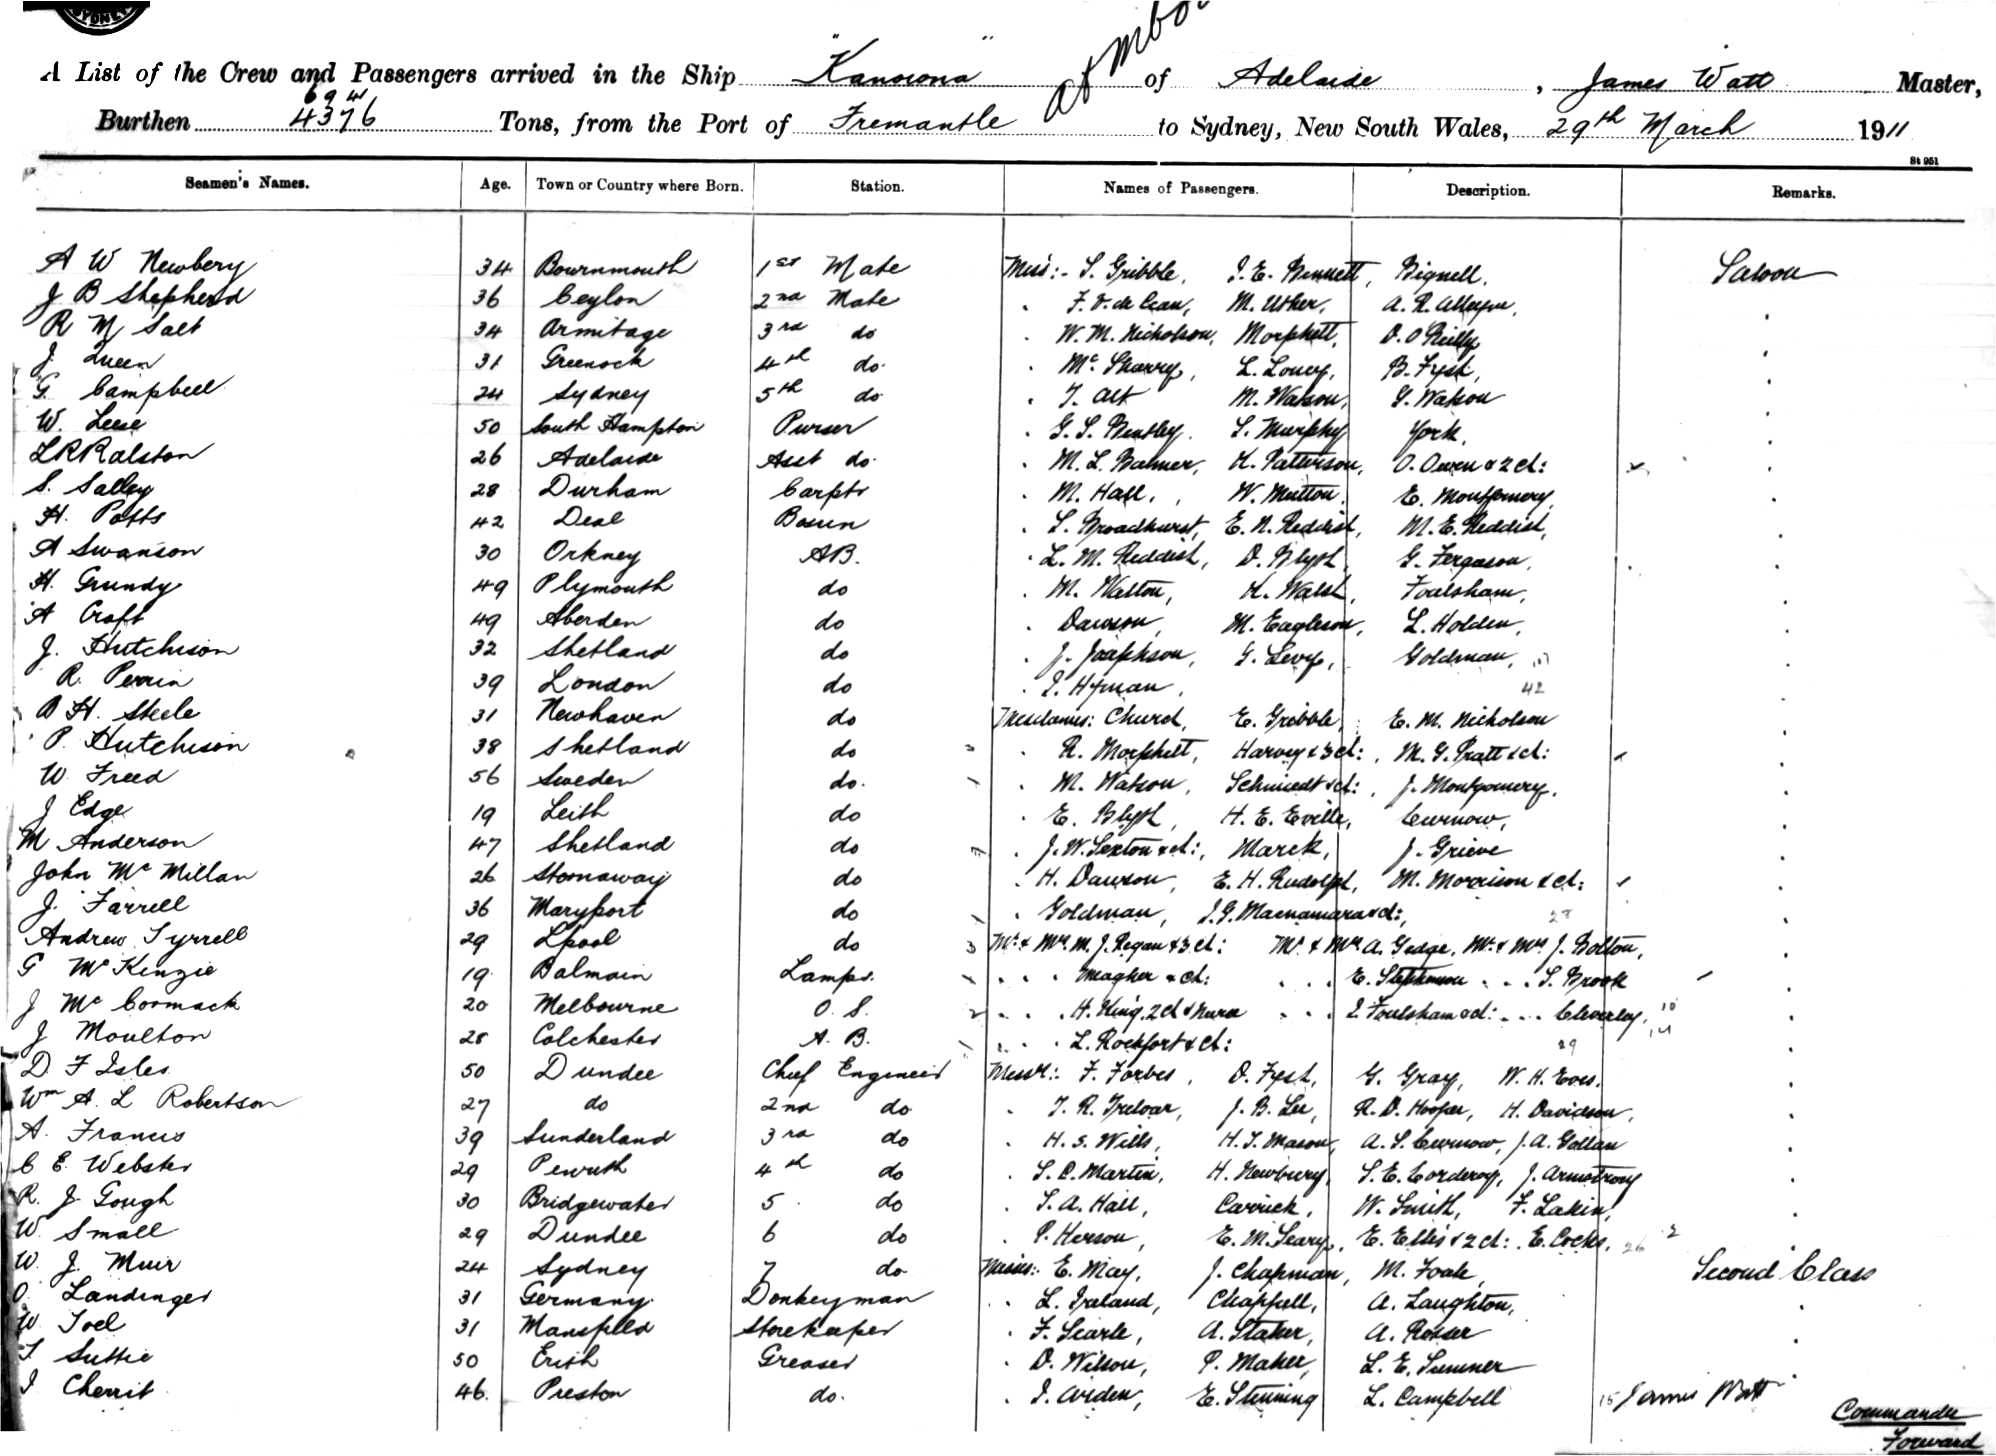 SYDNEY
at Mbo
A List of the Crew and Passengers arrived in the Ship "Kanowna" of Adelaide, James Watt Master,
694
Burthen 4376 Tons, from the Port of Fremantle to Sydney, New South Wales, 29th March 1911
St 951
Seamen's Names. Age. Town or Country where Born. Station. Names of Passengers. Description. Remarks.
A W Newbery 34 Bournmouth 1st Mate Miss:- S. Gribble, I. E. Bennett, Bignell. Saloon
J B Shepherd 36 Ceylon 2nd Mate " F. V. de Lean, M. Usher, A. R. Alleyn,
R M Salt 34 Armitage 3rd do " W. M. Nicholson, Morphett, D. O'Reilly
J. Queen 31 Greenock 4th do. " Mc Sharry, L. Loney, B. Fysh,
G. Campbell 24 Sydney 5th do " T. Alt M. Watson, G. Watson
W. Leese 50 South Hampton Purser " G. S. Bentley. S. Murphy York,
L R Ralston 26 Adelaide Asst do. " M. L. Balmer, H. Patterson, O. Owen & 2 ch:
S. Salley 28 Durham Carptr " M. Hall, W. Mutton, E. Montgomery,
H. Potts 42 Deal Bosun " L. Broadhurst, E. N. Reddish, M. E. Reddish,
A Swanson 30 Orkney AB. " L. M. Reddish, D. Blyth, G. Ferguson,
H. Grundy 49 Plymouth do " M. Walton, K. Walsh, Foulsham,
A Croft 49 Aberden do " Dawson, M. Eagleson, L. Holden,
J. Hutchison 32 Shetland do " J. Josephson, G. Levy, Goldman,
R. Perrin 39 London do " I. Hyman, 42
B H. Steele 31 Newhaven do Mesdames: Church, E. Gribble, E. M. Nicholson
P. Hutchison 38 Shetland do 3 " R. Morphett, Harvey & 3 ch:, M. G. Pratt & ch:
W Freed 56 Sweden do. 1 " M. Watson, Schmiedt & ch:, J. Montgomery,
J Edge 19 Leith do " E. Blyth, H. E. Eville, Curnow,
M Anderson 47 Shetland do " J. W. Sexton & ch:, Marck, J. Grieve
John Mc Millan 26 Stornaway do " H. Dawson, E. H. Rudolph, M. Morrison & ch:
J. Farrell 36 Maryport do 1 " Goldman, I. G. Macnamara & ch:,
Andrew Tyrrell 29 Lpool do 3 Mr & Mrs M. J. Regan & 3 ch: Mr & Mrs A. Gedge, Mr & Mrs J. Bolton,
G McKenzie 19 Balmain Lamps. 1 " " " Meagher & ch: " " " E. Stephenson " " " S. Brook
J Mc Cormack 20 Melbourne O. S. 2 " " " H. King, 2 ch & Nurse " " " I. Foulsham & ch: " " " Cleverley, 10
J Moulton 28 Colchester A. B. 1 " " " L. Rochfort & ch: 29 14
D F Isles 50 Dundee Chief Engineer Messrs:- F. Forbes, D. Fysh, G. Gray, W. H. Eves,
Wm A. L Robertson 27 do 2nd do " T. R. Treloar, J. B. Lee, R. D. Hooper, H. Davidson,
A. Francis 39 Sunderland 3rd do " H. S. Wills, H. T. Mason, A. S. Curnow, J. A. Gollan
C E. Webster 29 Penruth 4th do " S. C. Martin, H. Newbury, S. E. Corderoy, J. Armstrong
R. J. Gough 30 Bridgewater 5. do " S. A. Hall, Carrick, W. Smith, F. Lakin,
W. Small 29 Dundee 6 do " P. Herson, E. M. Leary, E. Ellis & 2 ch:, E. Cocks, 26 2
W. J. Muir 24 Sydney 7 do Misses:- E. May, J. Chapman, M. Foale, Second Class
O. Landinger 31 Germany. Donkeyman " L. Ireland, Chappell, A. Laughton,
W. Joel 31 Mansfield Storekeeper " F. Searle, A. Staker, A. Rosser
T. Suttie 50 Erith Greaser " D. Wilson, P. Maher, L. E. Sumner
I Cherrit 46. Preston do. " I. Arden, E. Stenning L. Campbell 15 James Watt
Commander
Forward